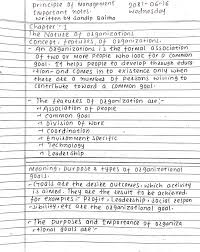 Principle of Management 2081-06-16
Important notes: Wednesday
written by Sandip
Chapter: 1
The Nature Of Organizations
Concept, Features Of Organizations.
- An Organizations is the formal association
Of two or more people who look for a common
goal. It helps people to develop through
and comes in to existence only when
there are a number of persons willing to
contribute toward a common goal.
- The Features Of Organization are:-
→ Association of People
→ Common Goal
→ Division of Work
→ Coordination
→ Environment Specific
→ Technology
→ Leadership
Meaning, Purpose & types Of Organizational
goals:
- Goals are the desire outcomes, which activity
is aimed. They are the result to be achieved.
for examples:- Profit, Leadership, social respon-
sibility, etc are the organizational goal.
- The Purposes and Importance Of Organiza
tional goals are:-